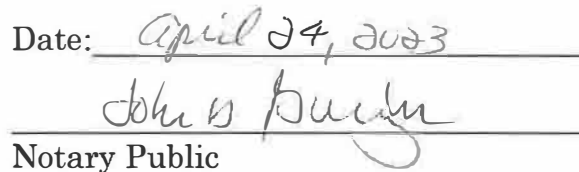 Date: April 24, 2023
John D
Notary Public